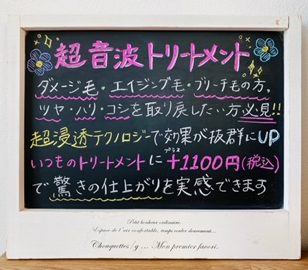 超音波トリートメント
ダメージ毛・エイジング毛・ブリーチ毛の方、
ツヤ・ハリ・コシを取り戻したい方必見!!
超浸透テクノロジーで効果が抜群にUP
いつものトリートメントに プラス +1100円(税込)
で驚きの仕上がりを実感できます
Petit bonheur ordinaire.
Espace de l'air confortable, temps couler doucement...
Chouquettes/g ... Mon premier favori.